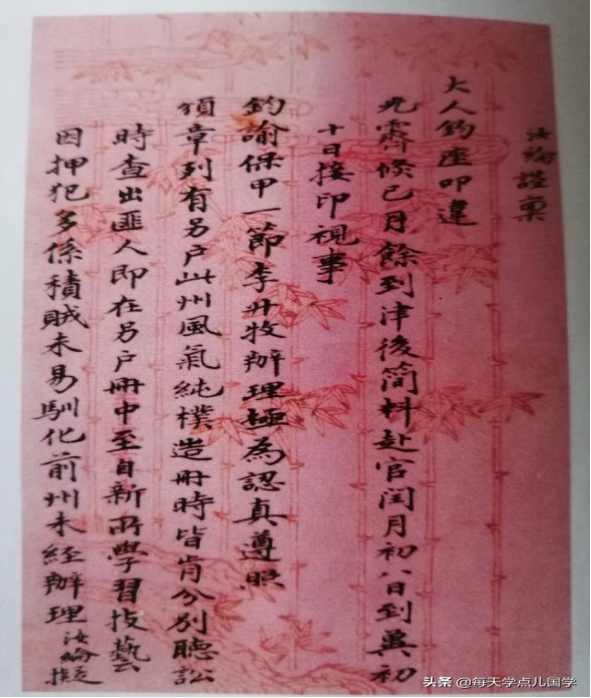 汝綸謹稟
大人鈞座叩違
光霽倏已月餘到津後簡料赴官閏月初八日到冀初
十日接印視事
鈞諭保甲一節李升牧辦理極為認真遵照
頒章列有另户此州風氣純樸造冊時皆肯分別聽訟
時查出匪人即在另户冊中至自新所學習技藝
因押犯多係積賊未易馴化前州未經辦理汝綸定擬
头条 @每天学点儿国学